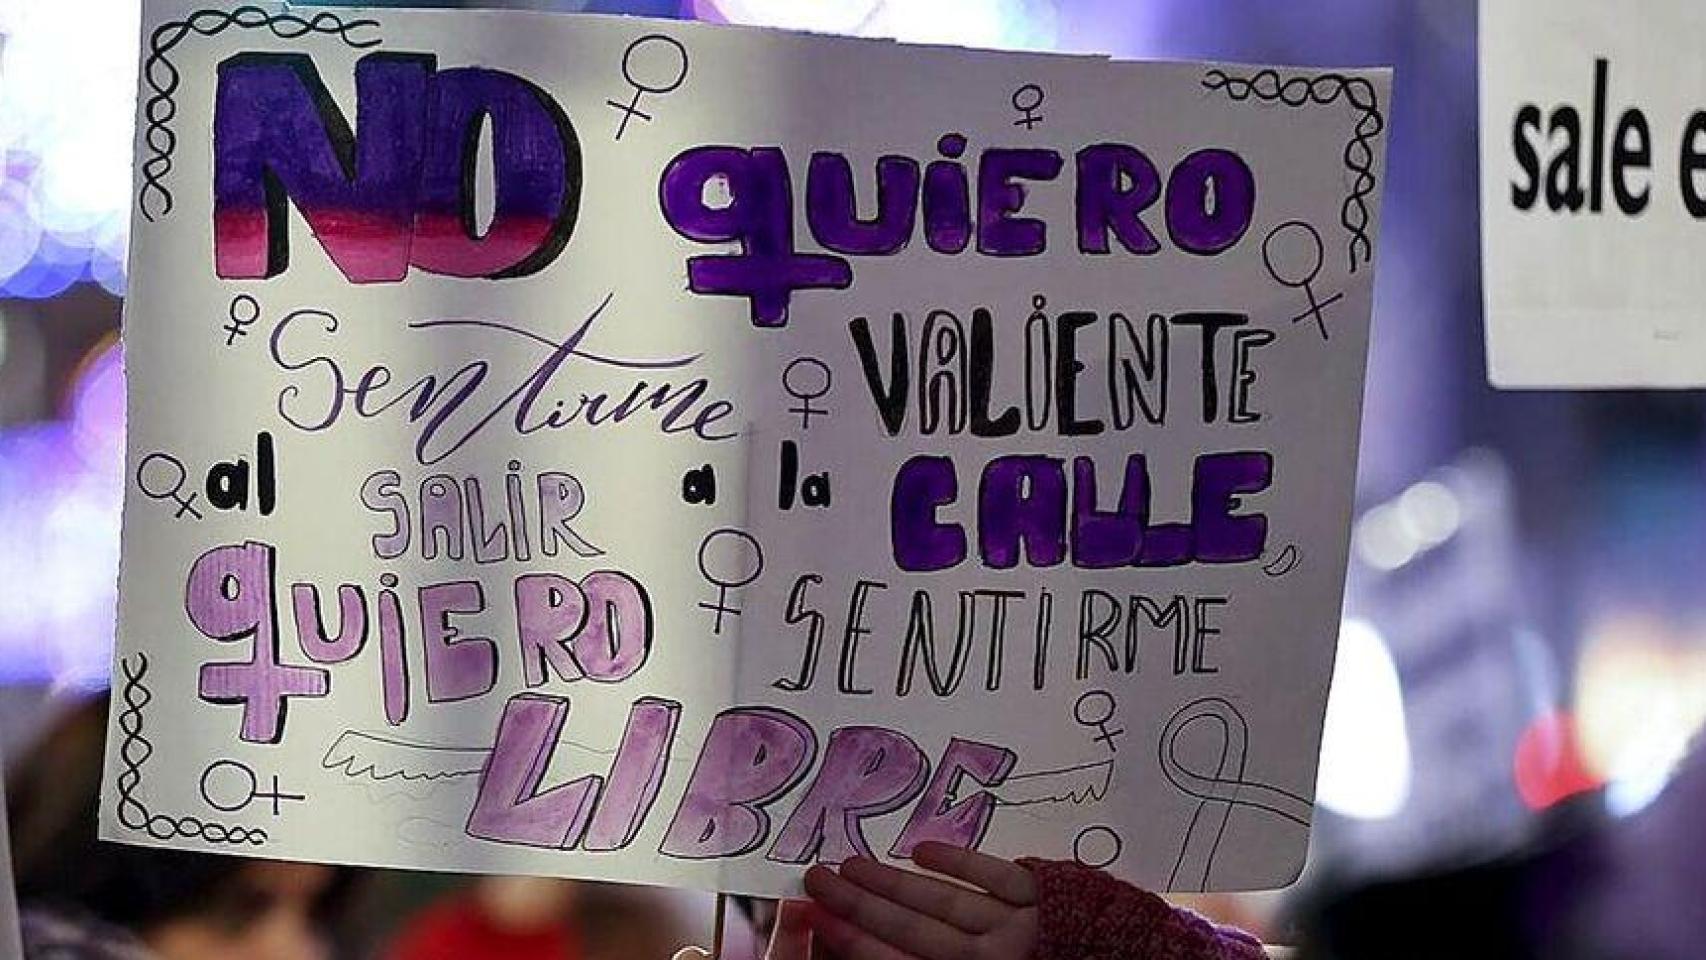 NO QUiERO
Sentirme VALiENTE
al SALiR a la CALLE,
QUiERO SENTIRME
LIBRE
sale e